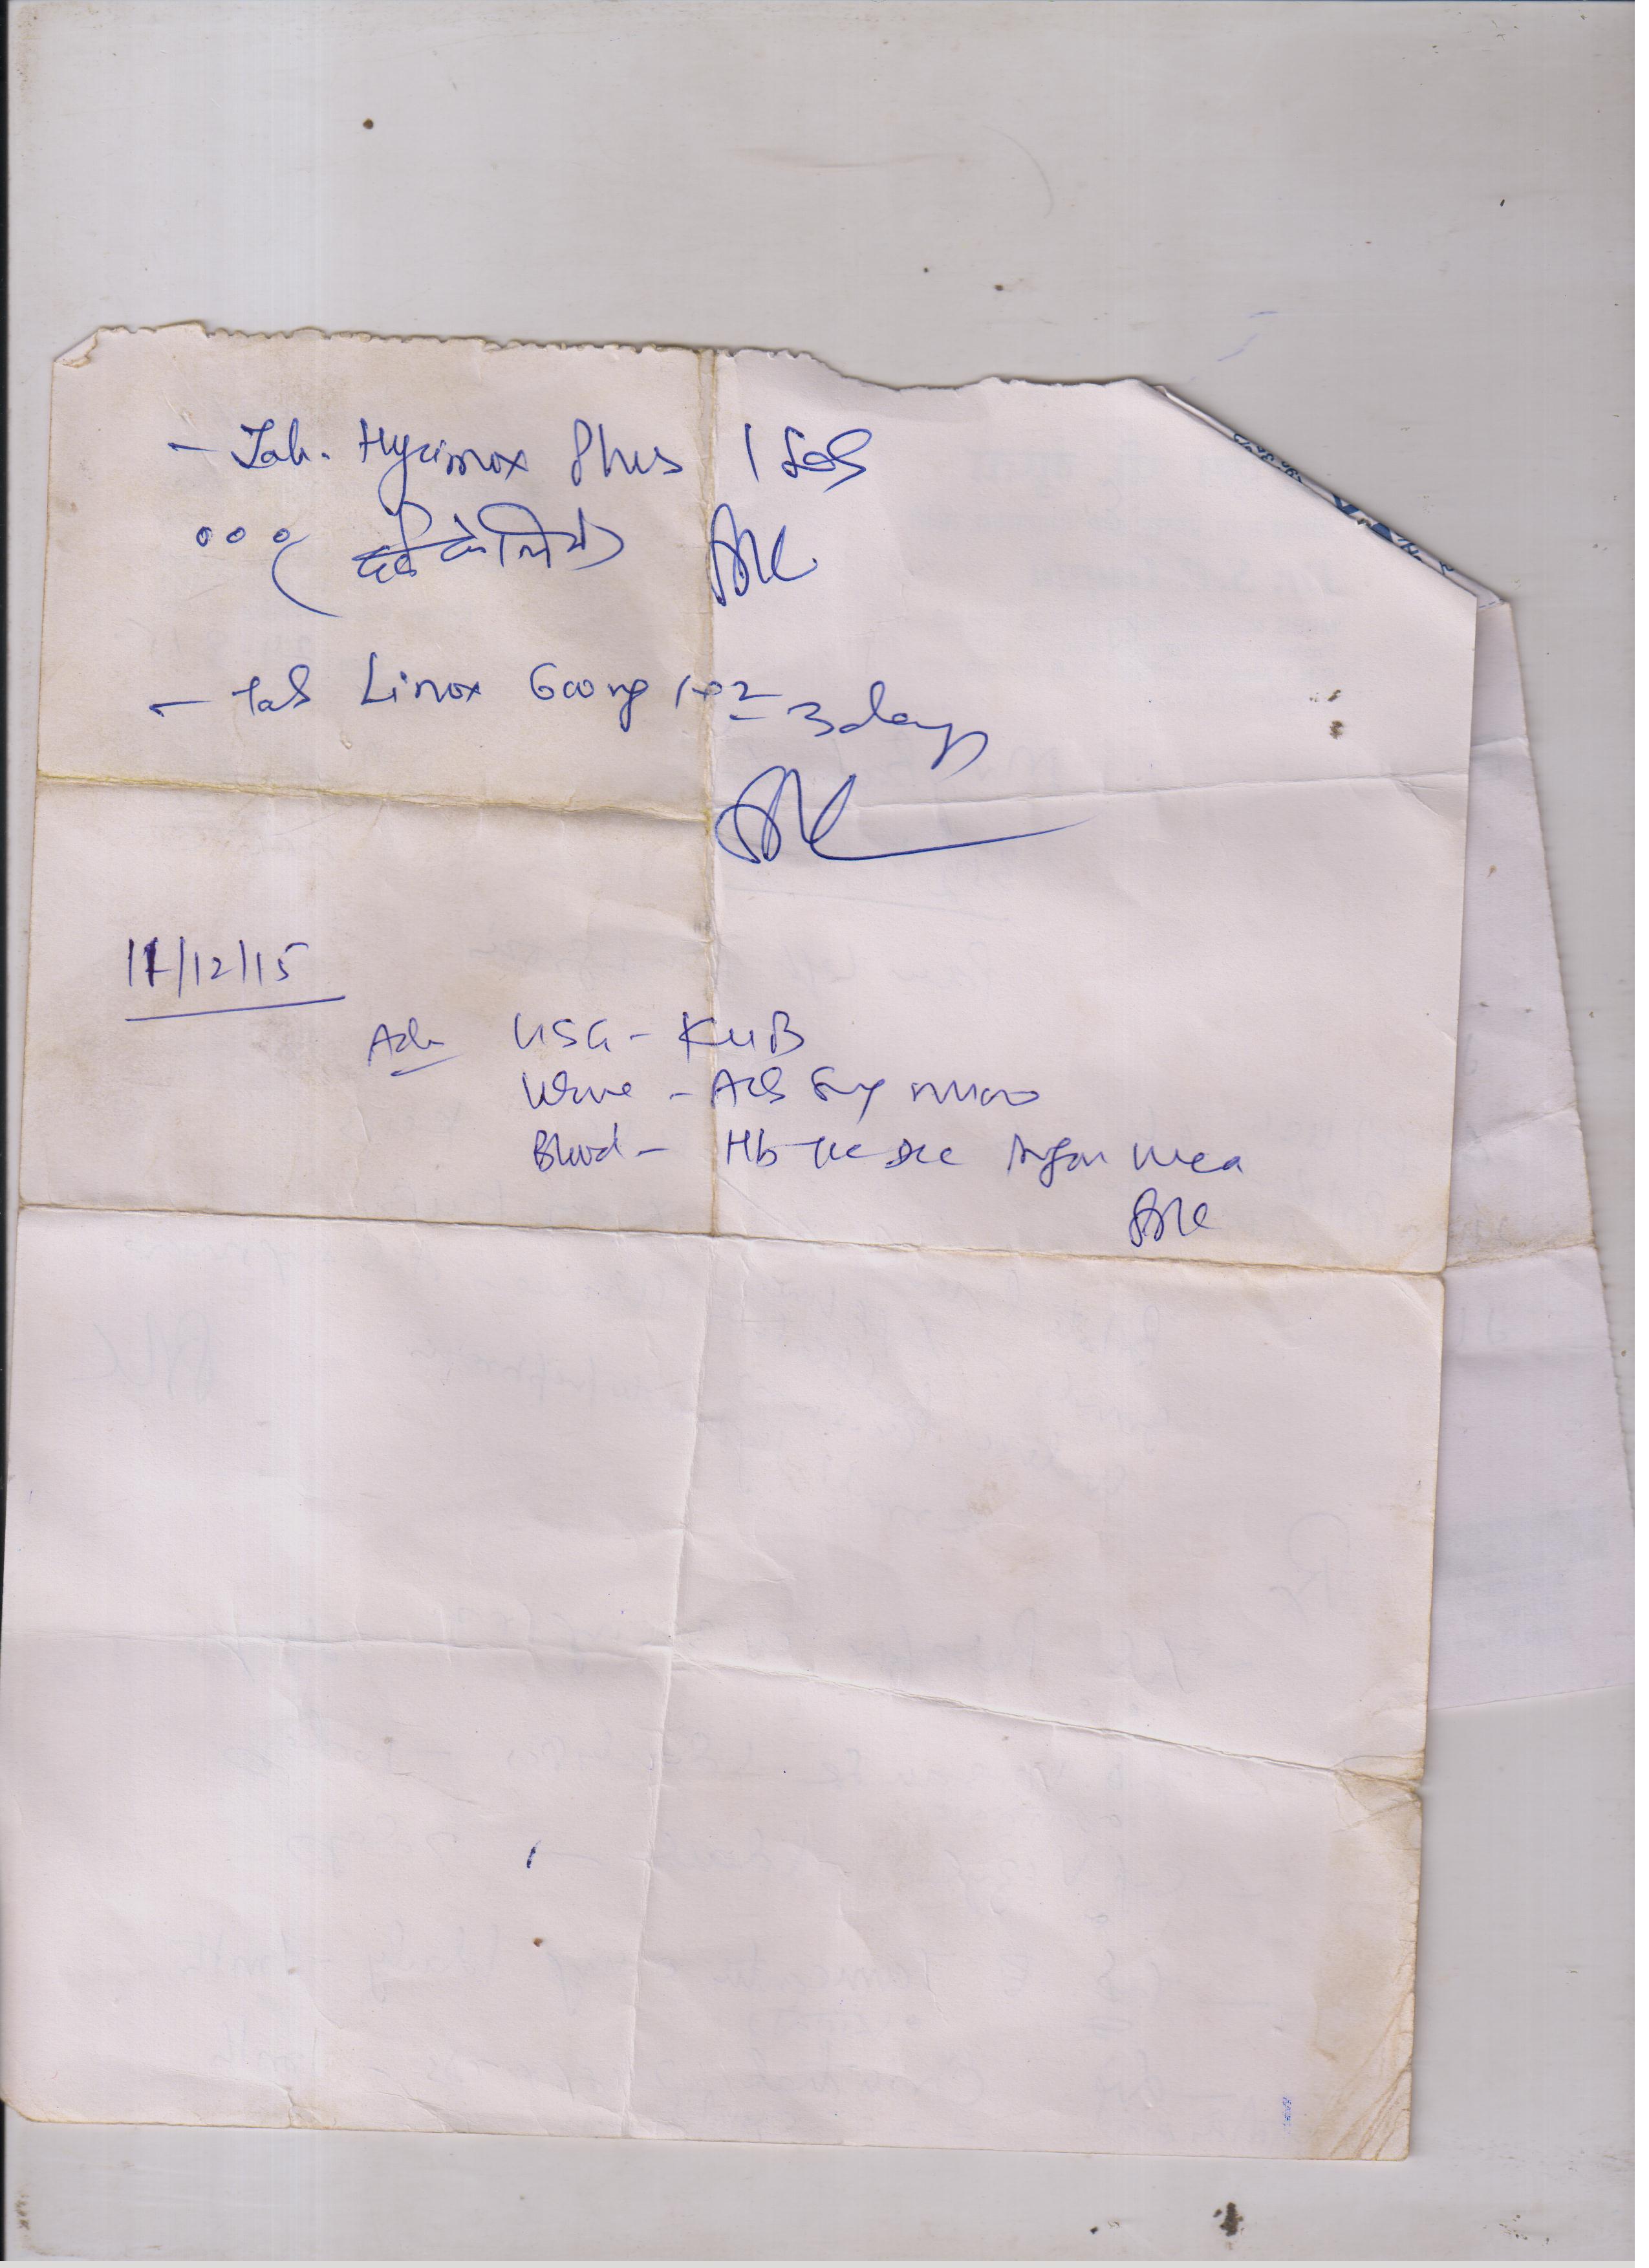 - Tab. Hycimox Plus 1 SOS
ooo ( दर्द के लिये )
- Tab Linox 600mg 1x2 3 days
11/12/15
Adv USG - KUB
Urine - Alb Sug micro
Blood - Hb TLC DLC Sugar Urea